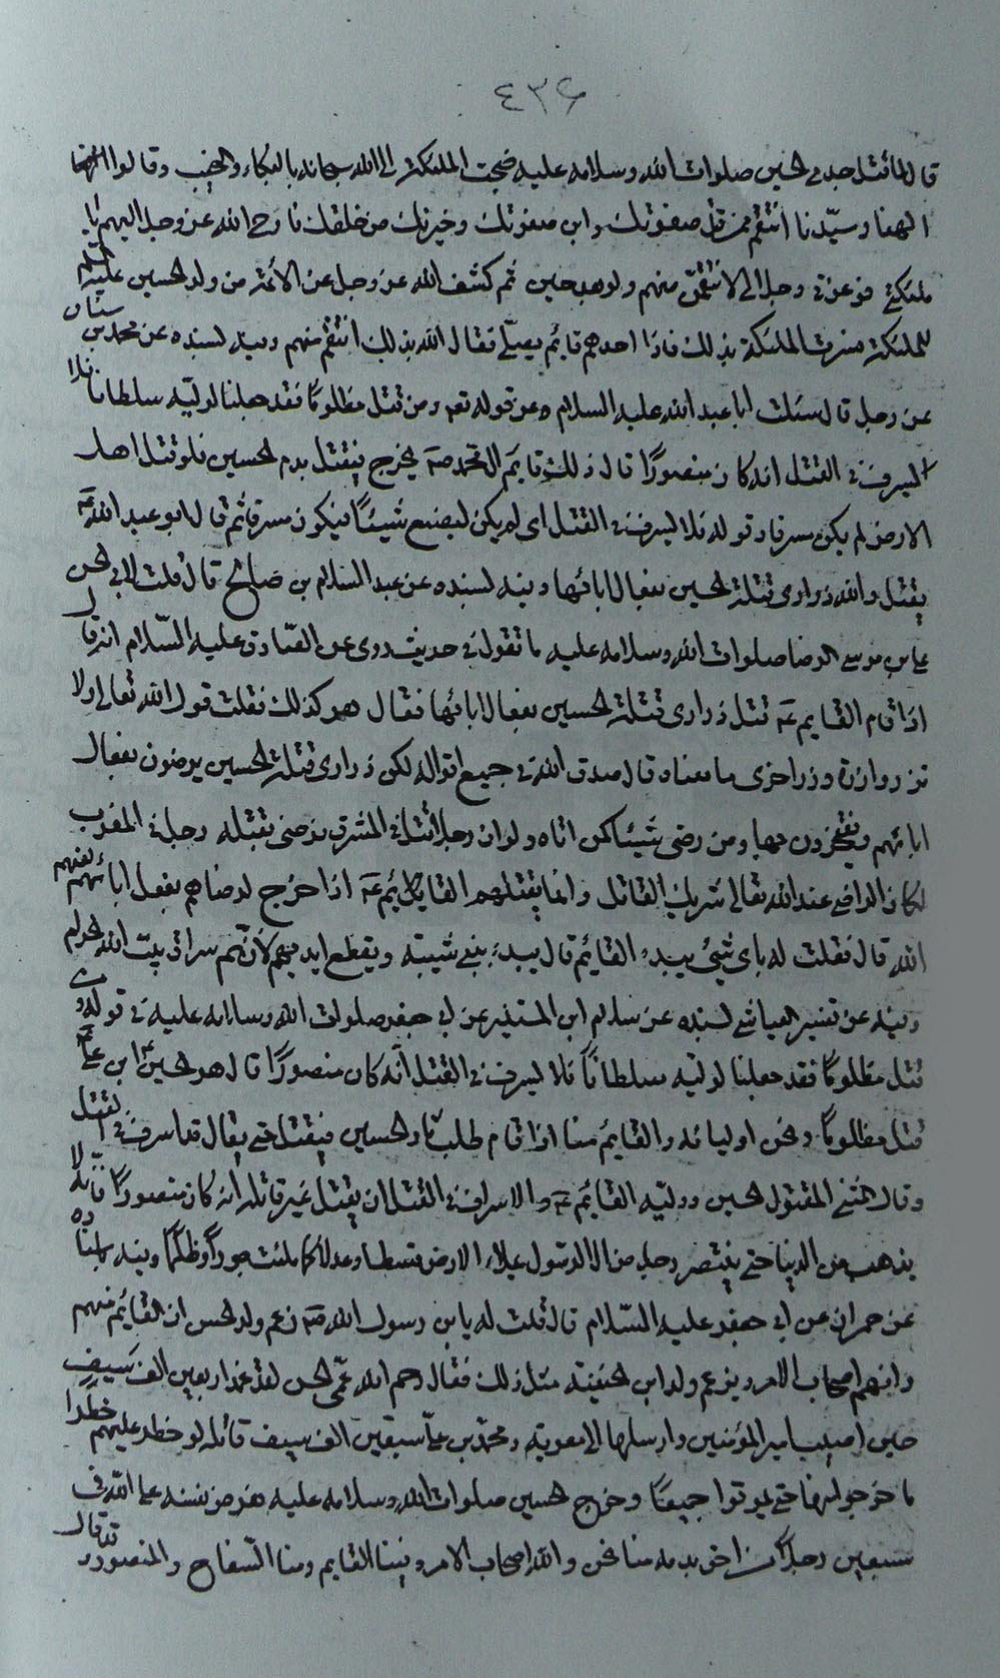 ٤٣٦
قال لما قتل جدي الحسين صلوات الله وسلامه عليه ضجت الملئكة الى الله سبحانه بالبكاء والنحيب وقالوا
الهنا وسيّدنا انتقم ممن قتل صفوتك وابن صفوتك وخيرتك من خلقك فاوحى الله عز وجل اليهم يا
ملئكتي فوعزتي وجلالي لانتقمن منهم ولو بعد حين ثم كشف الله عز وجل عن الائمة من ولد الحسين عليه السلم
للملئكة فسرت الملئكة بذلك فاذا احدهم قايم يصلي فقال الله بذلك انتقم منهم وفيه بسنده عن محمد بن سنان
عن رجل قال سئلت ابا عبد الله عليه السلام عن قوله تعم ومن قتل مظلومًا فقد جعلنا لوليه سلطانا فلا
يسرف في القتل انه كان منصورًا قال ذلك قايم ال محمد صه يخرج فيقتل بدم الحسين فلو قتل اهل
الارض لم يكن مسرفا وقوله فلا يسرف في القتل اى لم يكن ليصنع شيئًا فيكون مسرفا ثم قال ابو عبد الله عه
يقتل والله ذراري قتلة الحسين بفعال ابائها وفيه بسنده عن عبد السلام بن صالح قال قلت لابي الحسن
علي بن موسى الرضا صلوات الله وسلامه عليه ما تقول في حديث روى عن الصادق عليه السّلام انه قال
اذا قام القايم عه قتل ذراري قتلة الحسين بفعال ابائها فقال هو كذلك فقلت قول الله تعالى ولا
تزر وازرة وزر اخرى ما معناه قال صدق الله في جميع اقواله لكن ذراري قتلة الحسين يرضون بفعال
ابائهم ويفتخرون بها ومن رضى شيئا كمن اتاه ولو ان رجلا قتل في المشرق فرضى بقتله رجل في المغرب
لكان الراضي عند الله تعالى شريك القاتل وانما يقتلهم القايم عه اذا خرج لرضاهم بفعل ابائهم
الله قال فقلت له باي شيئ يبدء القايم قال يبدء ببني شيبة ويقطع ايديهم لانهم سراق بيت الله الحرام
وفيه عن تفسير العياشي بسنده عن سلام ابن المستنير عن ابي جعفر صلوات الله وسلامه عليه في قوله ومن
قتل مظلومًا فقد جعلنا لوليه سلطانًا فلا يسرف في القتل انه كان منصورًا قال هو الحسين ابن علي عه
قتل مظلومًا ونحن اوليائه والقايم منا اذا قام طلب ثار الحسين فيقتل حتى يقال قد اسرف في القتل
وقال المقتول الحسين ووليه القائم عه والاسراف في القتل ان يقتل غير قاتله انه كان منصورًا فانه لا
يذهب من الدنيا حتى ينتصر رجل من ال الرسول يملاء الارض قسطا وعدلا كما ملئت جورًا وظلمًا وفيه باسناده
عن حمران عن ابي جعفر عليه السّلام قال قلت له يابن رسول الله صه زعم ولد الحسن ان القايم منهم
وانهم اصحاب الامر ويزعم ولد ابن الحنفية مثل ذلك فقال رحم الله عمي الحسن لقد غمد اربعين الف سيف
حين اصيب امير المؤمنين وارسلها الى معوية ومحمد بن علي سبعين الف سيف قاتله لو خطر عليهم خطرا
ما خرجوا منها حتى يموتوا جميعًا وخرج الحسين صلوات الله وسلامه عليه فعرض نفسه على الله في
سبعين رجلا من احق بدمه منا نحن والله اصحاب الامر وفينا القايم ومنا السّفاح والمنصور وقد قال